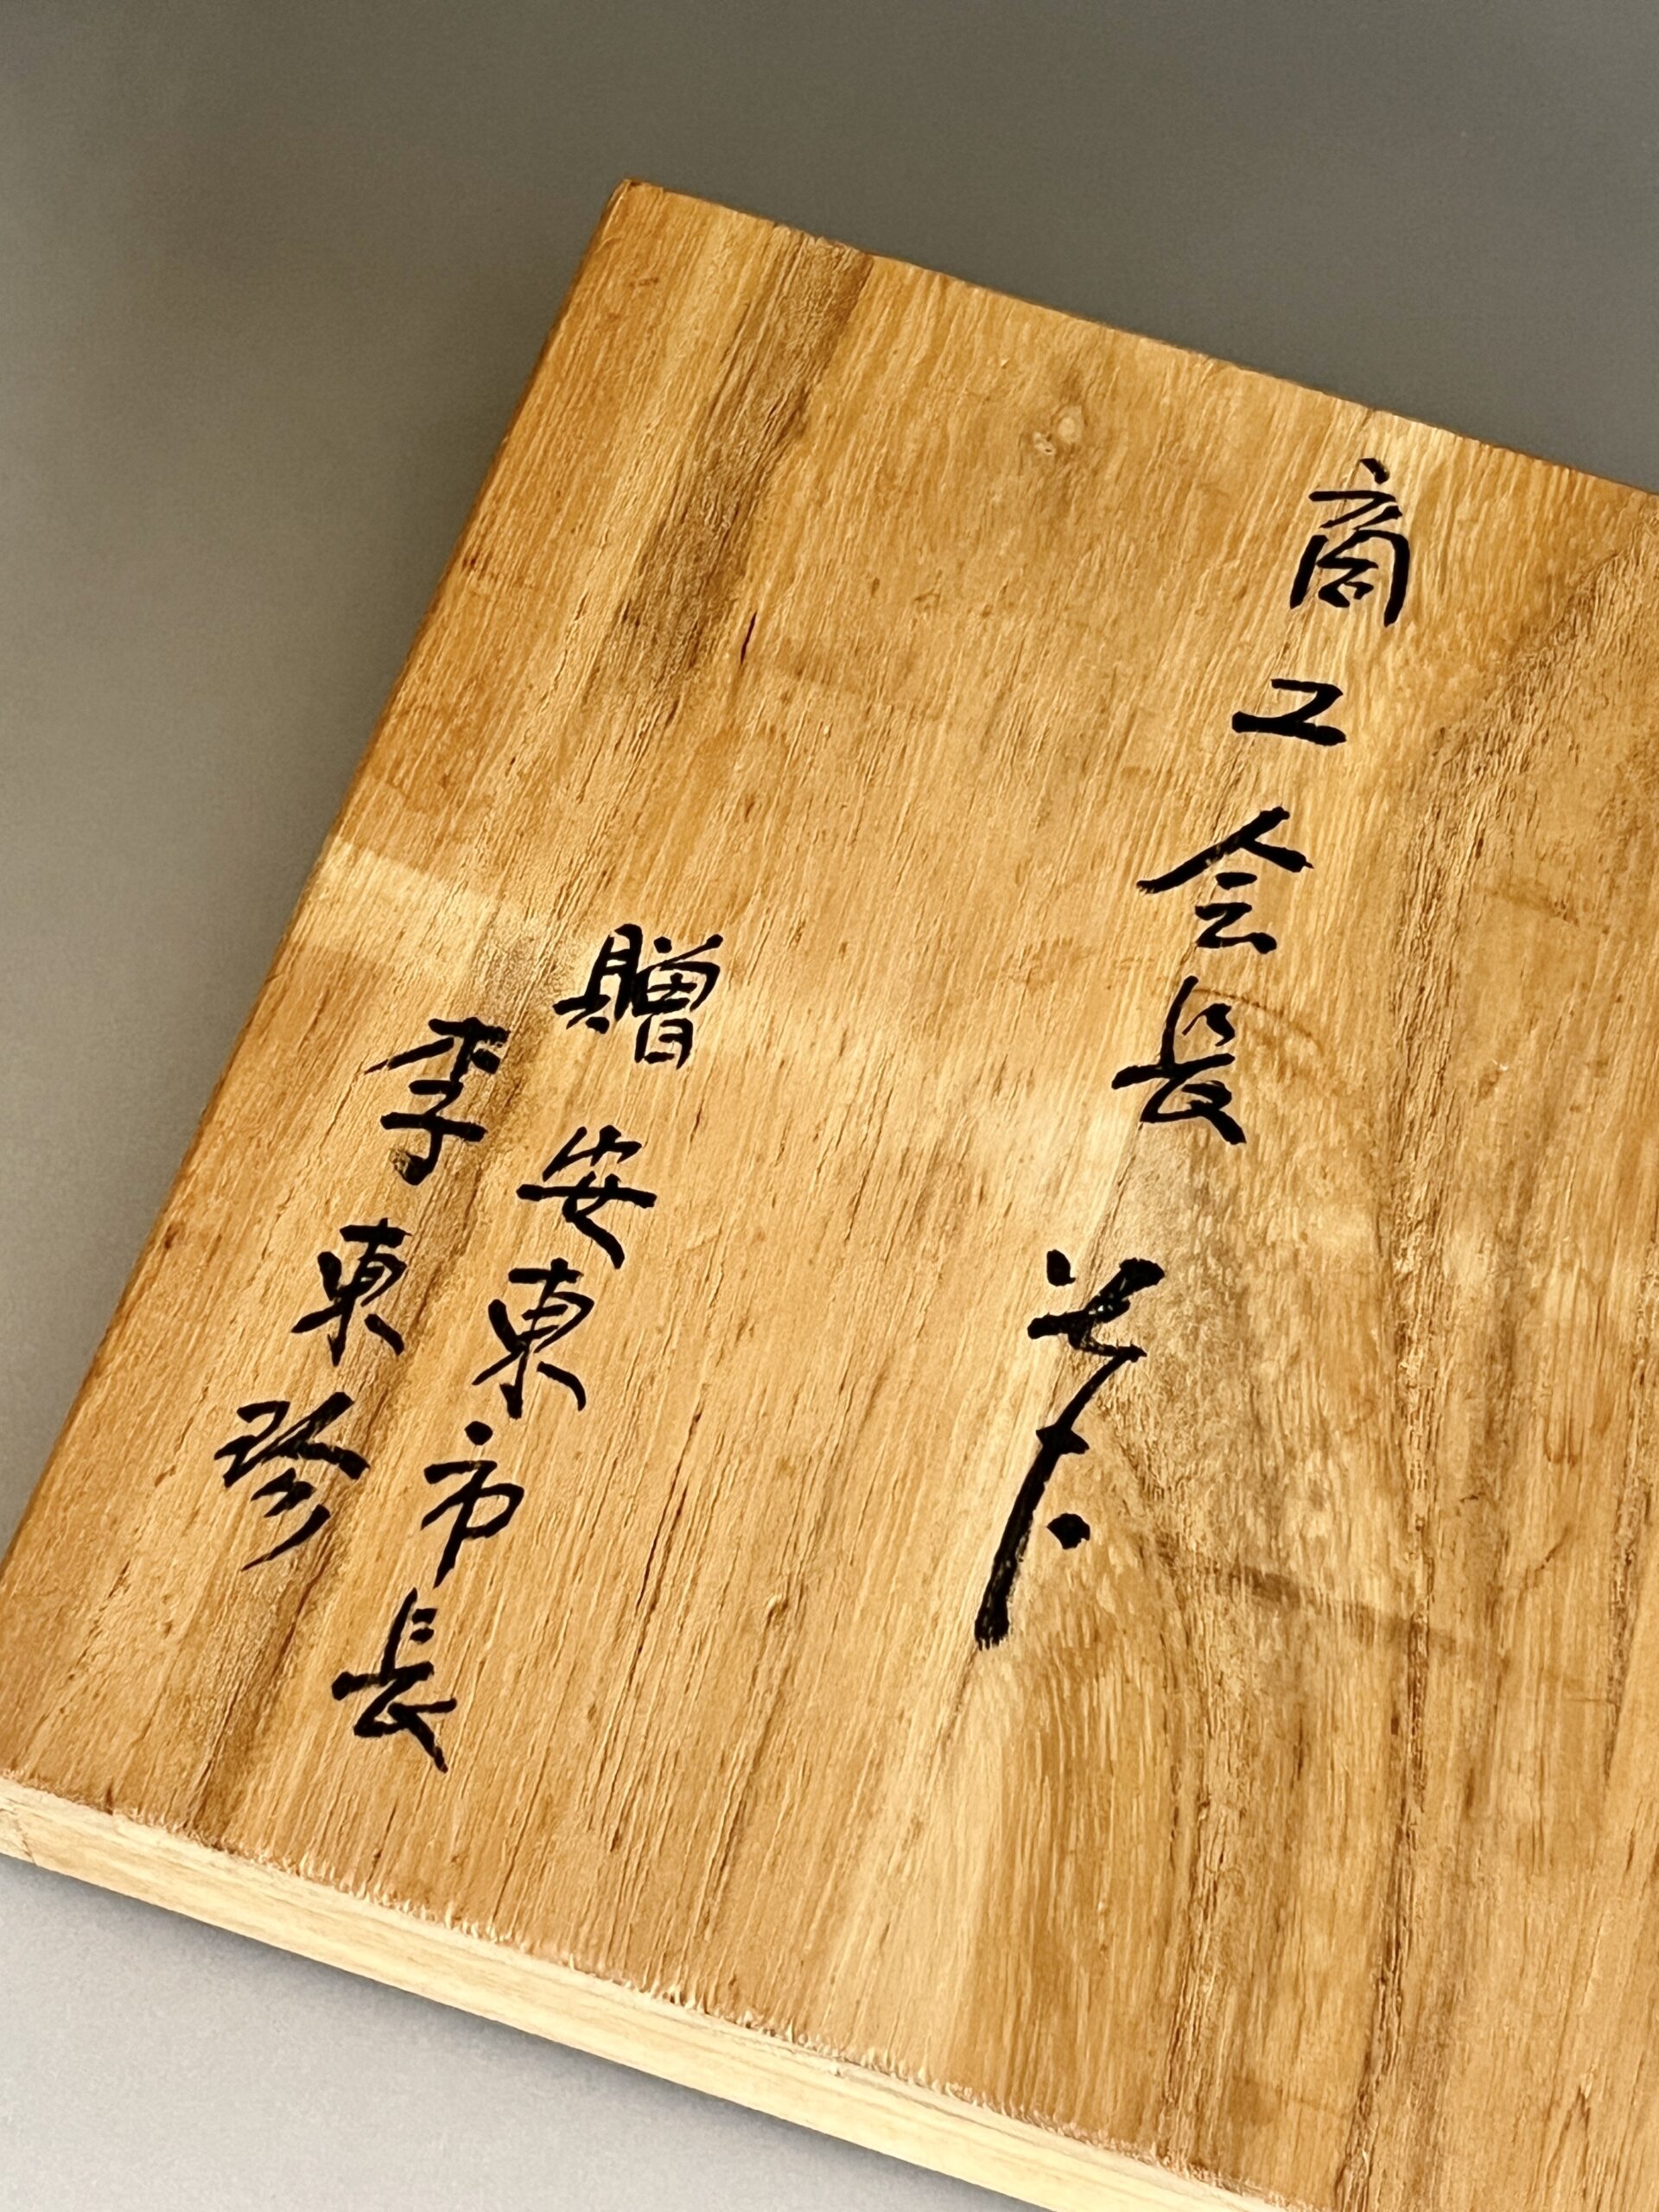 商工会長 貴下
贈 安東市長
李東珍